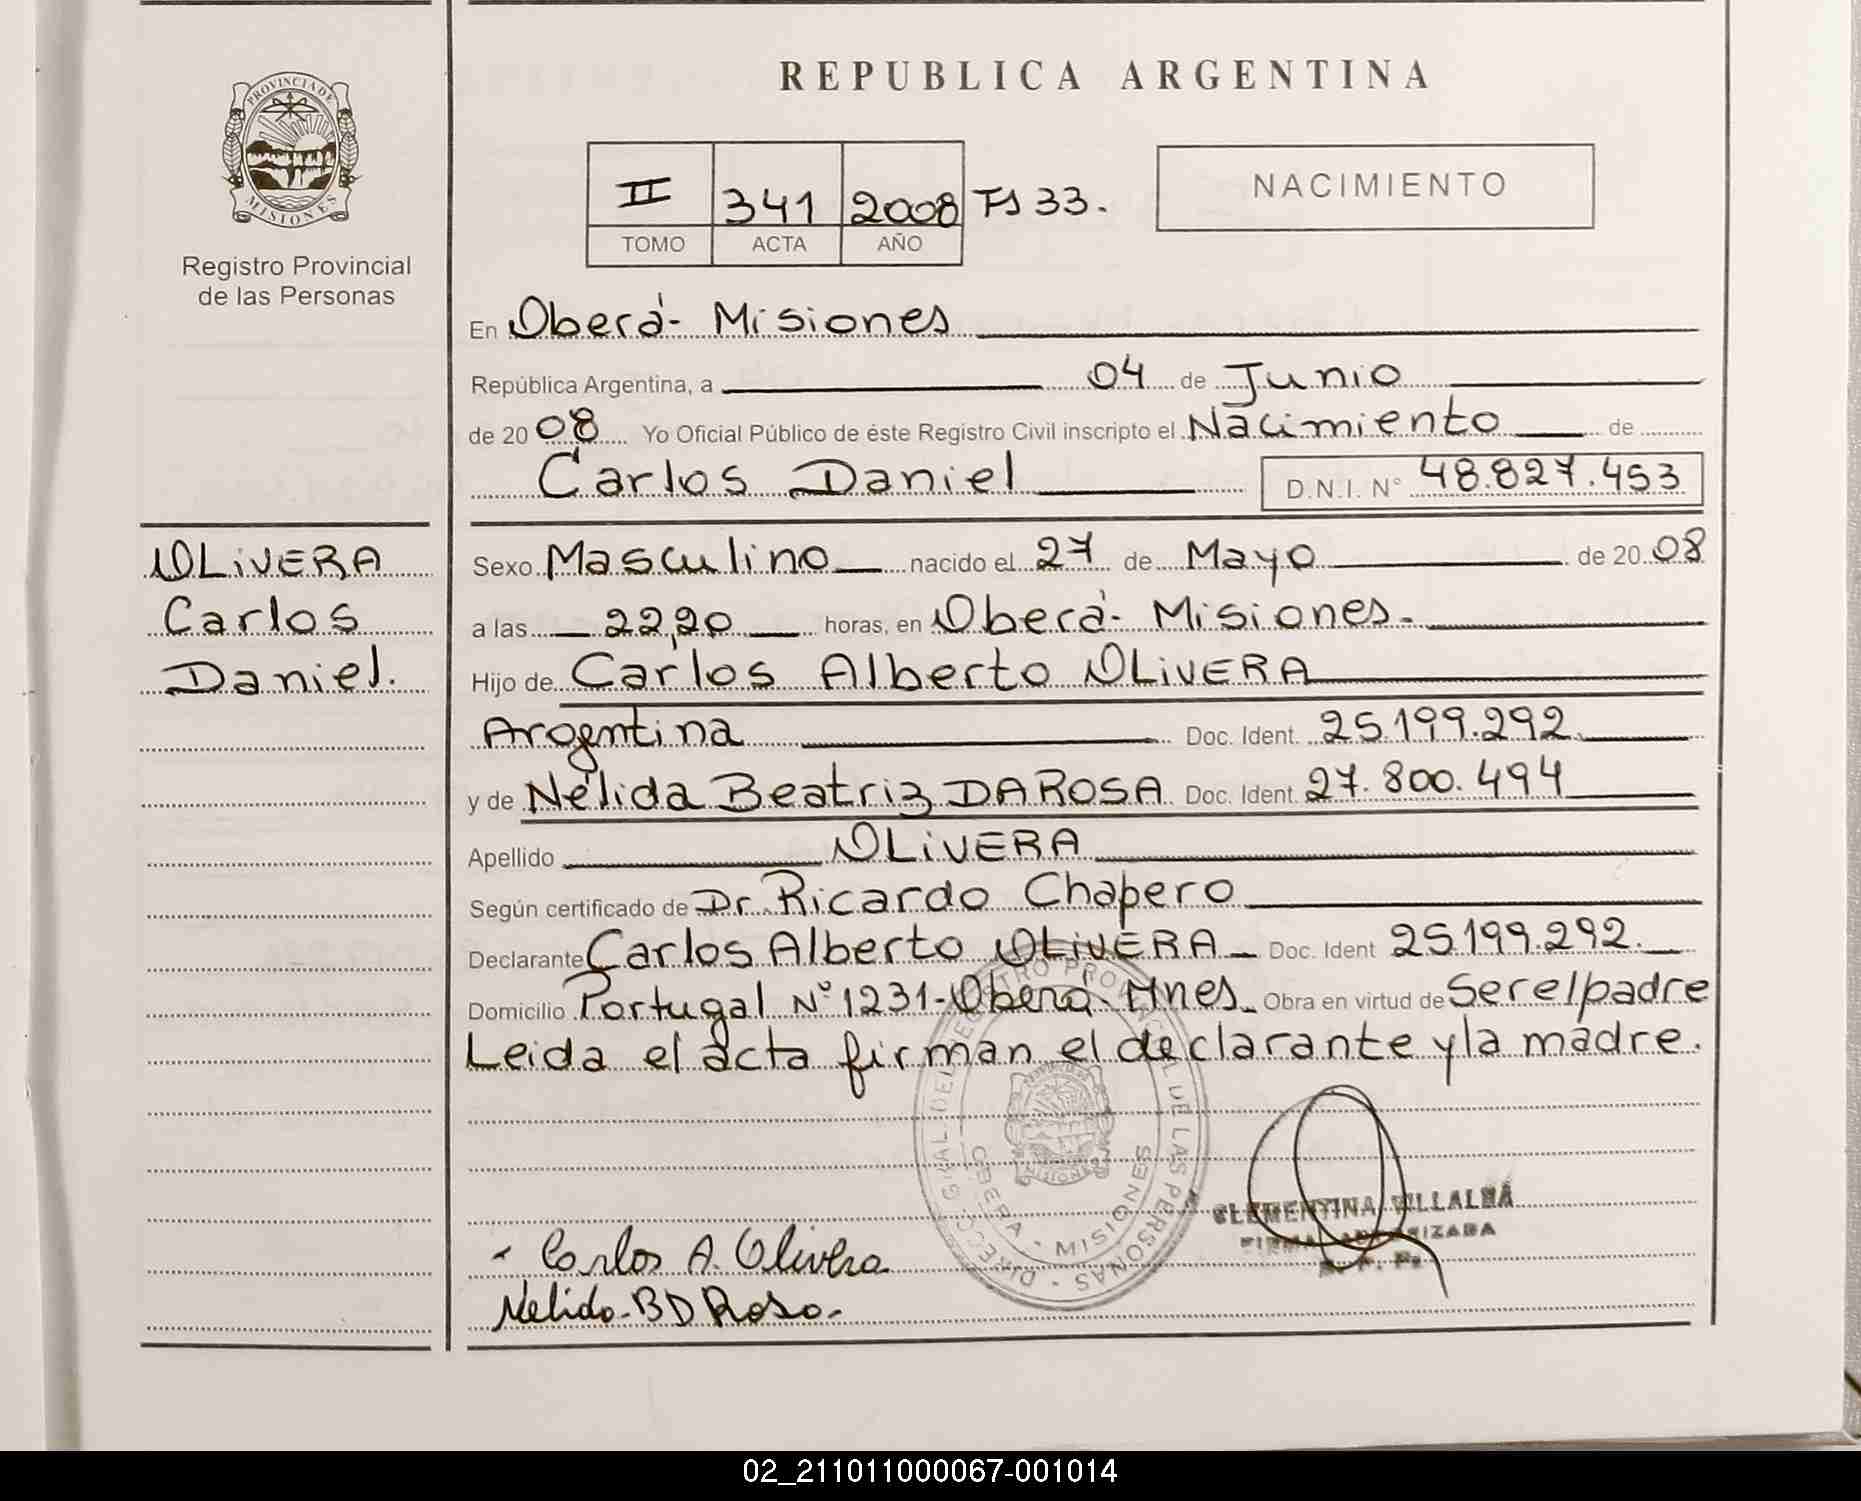 REPUBLICA ARGENTINA
PROVINCIA DE
MISIONES
Registro Provincial
de las Personas
II 341 2008 Fs 33.
TOMO ACTA AÑO
NACIMIENTO
En Oberá- Misiones
República Argentina, a 04 de Junio
de 20 08 Yo Oficial Público de éste Registro Civil inscripto el Nacimiento de
Carlos Daniel D.N.I. N° 48.827.453
OLIVERA
Carlos
Daniel.
Sexo Masculino nacido el 27 de Mayo de 20 08
a las 22,20 horas, en Oberá- Misiones.
Hijo de Carlos Alberto OLIVERA
Argentina Doc. Ident. 25.199.292.
y de Nélida Beatriz DA ROSA Doc. Ident. 27.800.494
Apellido OLIVERA
Según certificado de Dr. Ricardo Chapero
Declarante Carlos Alberto OLIVERA Doc. Ident 25.199.292.
Domicilio Portugal N° 1231-Oberá- Mnes. Obra en virtud de Ser el padre
Leida el acta firman el declarante y la madre.
DIRECC. GRAL. DEL REGISTRO PROVINCIAL DE LAS PERSONAS
OBERA - MISIONES
CLEMENTINA VILLALBA
FIRMA AUTORIZADA
R. P. P.
- Carlos A. Olivera
Nelida. B D Rosa.
02_211011000067-001014